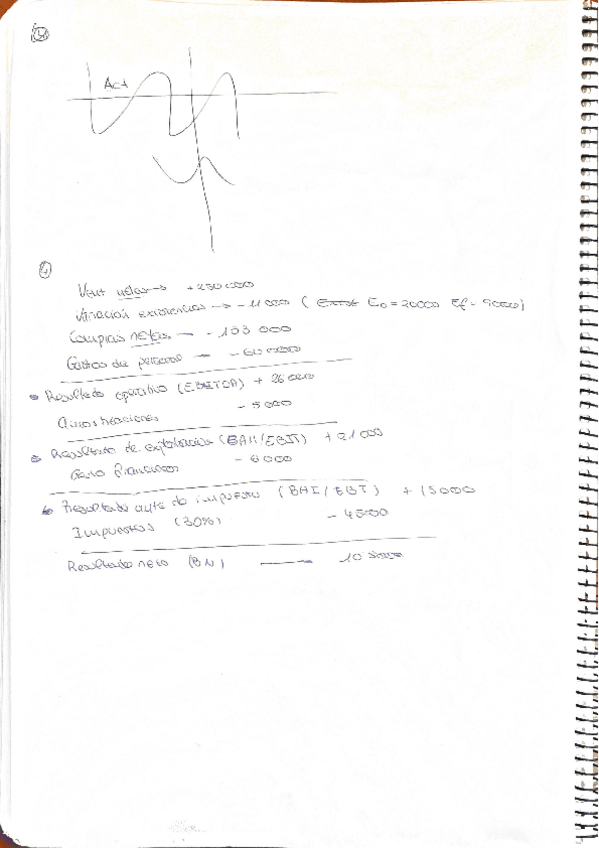 Act
4
Vent netas → +230 000
Variación existencias → -11 000 ( E0 = 20000 Ef - 9000)
Compras netas — - 133 000
Gastos de personal — - 60 000
Resultado operativo (EBITDA) + 26 000
Amortizaciones - 5000
Resultado de explotación (BAII/EBIT) + 21 000
Gasto financieros - 6000
Resultado ante de impuesto (BAI/EBT) + 15000
Impuestos (30%) - 4500
Resultado neto (BN) —— 10 500